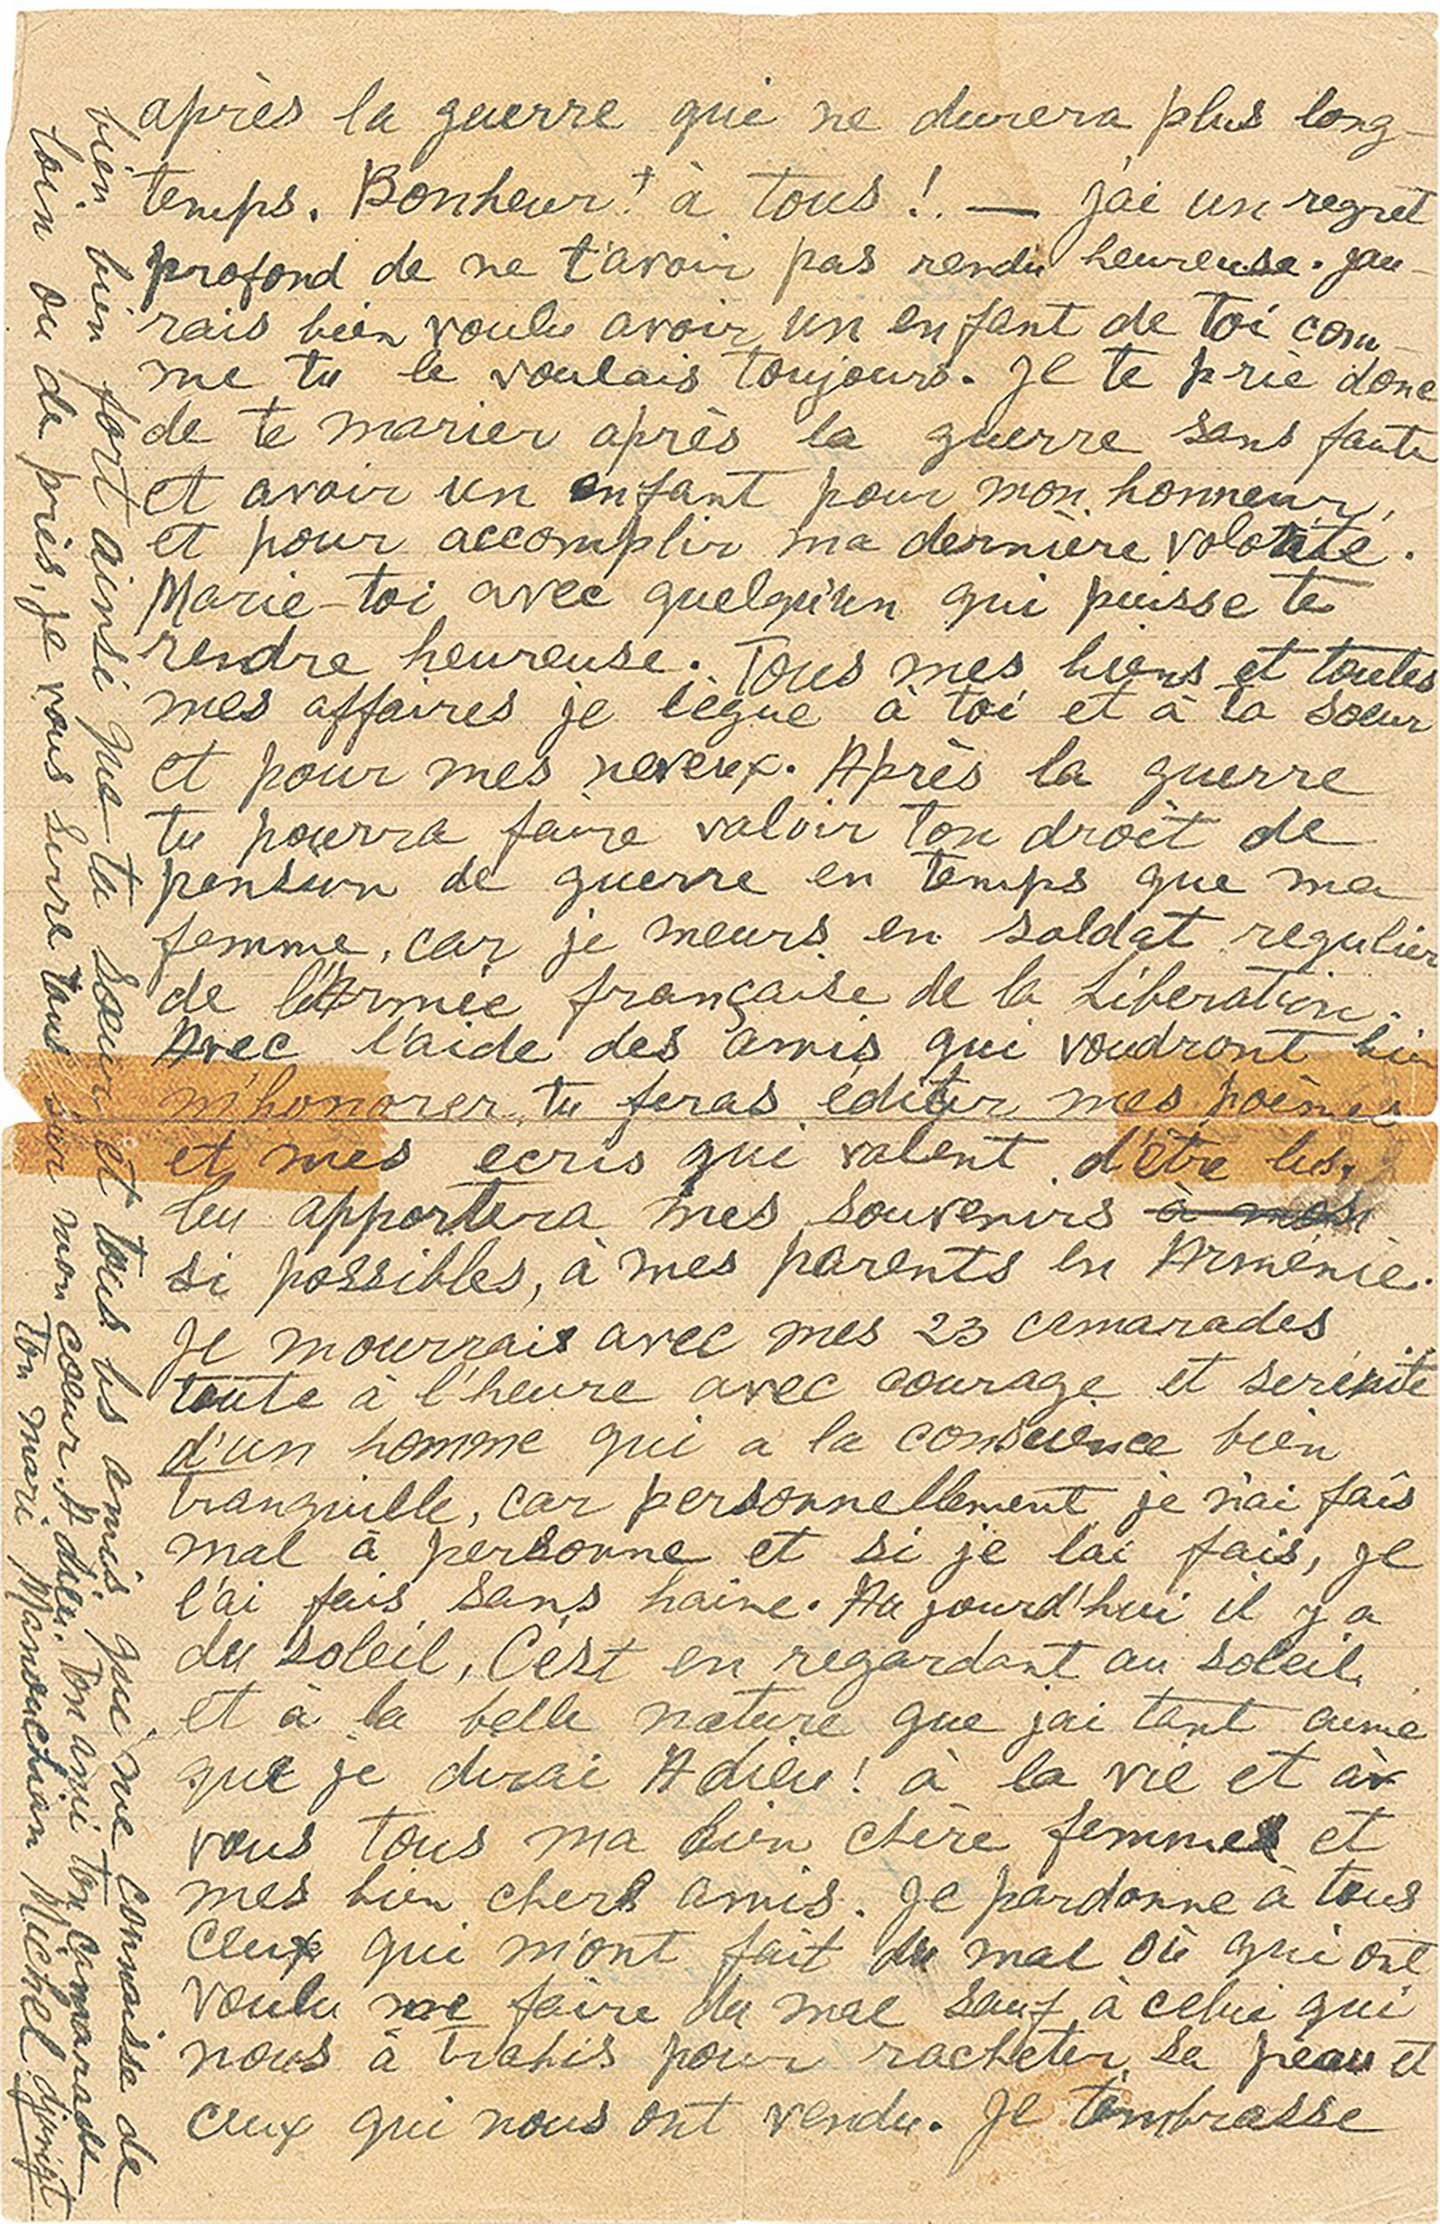 après la guerre qui ne durera plus long-
temps. Bonheur ! à tous ! — j'ai un regret
profond de ne t'avoir pas rendu heureuse. jau-
rais bien voulu avoir un enfant de toi com-
me tu le voulais toujours. je te prie donc
de te marier après la guerre sans faute
et avoir un enfant pour mon honneur,
et pour accomplir ma dernière volonté.
Marie-toi avec quelqu'un qui puisse te
rendre heureuse. Tous mes biens et toutes
mes affaires je lègue à toi et à ta sœur
et pour mes neveux. Après la guerre
tu pourra faire valoir ton droit de
pension de guerre en temps que ma
femme, car je meurs en soldat regulier
de l'Armée française de la Libération.
Avec l'aide des amis qui voudront bien
m'honorer, tu feras éditer mes poèmes
et mes ecris qui valent d'être lus.
tu apportera mes souvenirs à mes
si possibles, à mes parents en Arménie.
Je mourrais avec mes 23 camarades
toute à l'heure avec courage et serénité
d'un homme qui a la conscience bien
tranquille, car personnellement je n'ai fais
mal à personne et si je lai fais, je
l'ai fais sans haine. Aujourd'hui il y a
du soleil, C'est en regardant au soleil
et à la belle nature que jai tant aimé
que je dirai Adieu ! à la vie et à
vous tous ma bien chère femme et
mes bien chers amis. Je pardonne à tous
ceux qui m'ont fait du mal où qui ont
voulu me faire du mal sauf à celui qui
nous à trahis pour racheter sa peau et
ceux qui nous ont vendu. Je t'embrasse
bien bien fort ainsi que ta sœur et tous les amis qui me connaisse de
loin ou de près, je vous serre tous sur mon cœur. Adieu. Ton ami ton camarade
Ton mari Manouchian Michel djanigt